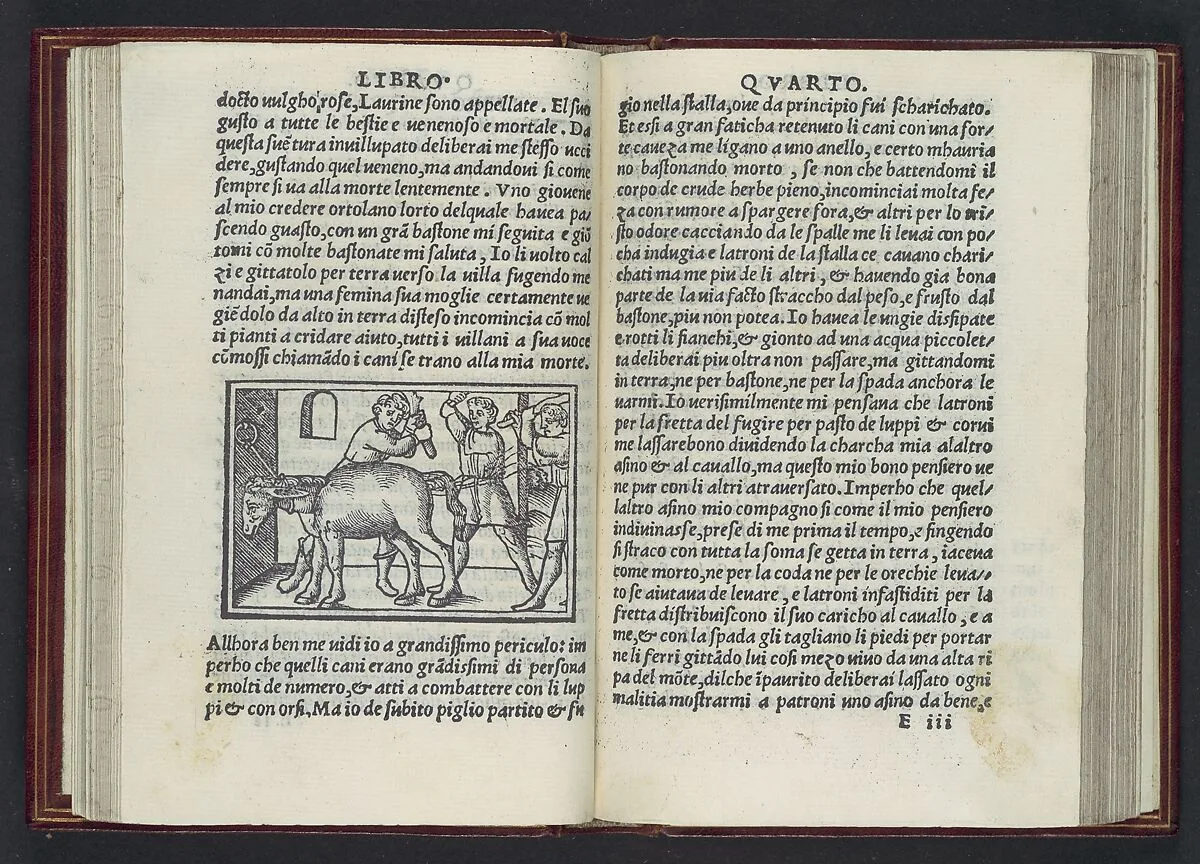 LIBRO.
docto uulgho rose, Laurine sono appellate. El suo
gusto a tutte le bestie e uenenoso e mortale. Da
questa suẽtura inuillupato deliberai me stesso ucci
dere, gustando quel ueneno, ma andandoui si come
sempre si ua alla morte lentemente. Vno giouene
al mio credere ortolano lorto delquale hauea pa/
scendo guasto, con un grã bastone mi seguita e giõ
tomi cõ molte bastonate mi saluta, Io li uolto cal
zi e gittatolo per terra uerso la uilla fugendo me
nandai, ma una femina sua moglie certamente ue
giẽdolo da alto in terra disteso incomincia cõ mol
ti pianti a cridare aiuto, tutti i uillani a sua uoce
cũmossi chiamãdo i cani se trano alla mia morte.
Allhora ben me uidi io a grandissimo periculo: im
perho che quelli cani erano grãdissimi di persona
e molti de numero, & atti a combattere con li lup
pi & con orsi, Ma io de subito piglio partito & fu
QVARTO.
gio nella stalla, oue da principio fui scharichato.
Et essi a gran faticha retenuto li cani con una for/
te caueza me ligano a uno anello, e certo mhauria
no bastonando morto, se non che battendomi il
corpo de crude herbe pieno, incominciai molta fe/
za con rumore a spargere fora, & altri per lo tri/
sto odore cacciando da le spalle me li leuai con po/
cha indugia e latroni de la stalla ce cauano chari/
chati ma me piu de li altri, & hauendo gia bona
parte de la uia facto straccho dal peso, e frusto dal
bastone, piu non potea. Io hauea le ungie dissipate
e rotti li fianchi, & gionto ad una acqua piccolet/
ta deliberai piu oltra non passare, ma gittandomi
in terra, ne per bastone, ne per la spada anchora le
uarmi. Io uerisimilmente mi pensaua che latroni
per la fretta del fugire per pasto de luppi & corui
me lassarebono diuidendo la charcha mia alaltro
asino & al cauallo, ma questo mio bono pensiero ue
ne pur con li altri atrauersato. Imperho che quel/
laltro asino mio compagno si come il mio pensiero
indiuinasse, prese di me prima il tempo, e fingendo
si straco con tutta la soma se getta in terra, iaceua
come morto, ne per la coda ne per le orechie leua/
to se aiutaua de leuare, e latroni infastiditi per la
fretta distribuiscono il suo caricho al cauallo, e a
me, & con la spada gli tagliano li piedi per portar
ne li ferri gittãdo lui cosi mezo uiuo da una alta ri
pa del mõte, dilche ĩpaurito deliberai lassato ogni
malitia mostrarmi a patroni uno asino da bene, e
E iii